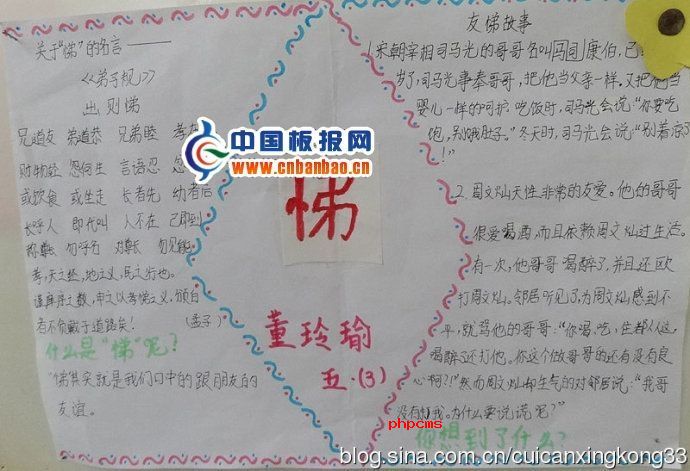 关于“悌”的名言——
《弟子规》
出则悌
兄道友 弟道恭 兄弟睦 孝在
财物轻 怨何生 言语忍 忿
或饮食 或坐走 长者先 幼者后
长呼人 即代叫 人不在 己即到
称尊长 勿呼名 对尊长 勿见能
孝,天之经,地之义,民之行也。
谨庠序之教,申之以孝悌之义,颁白
者不负戴于道路矣! (孟子)
什么是“悌”呢?
“悌其实就是我们口中的跟朋友的
友谊。
中国板报网
www.cnbanbao.cn
悌
董玲瑜
五·(3)
友悌故事
1宋朝宰相司马光的哥哥名叫司马康伯,已
岁了,司马光事奉哥哥,把他当父亲一样。又把他当
婴儿一样的呵护。吃饭时,司马光会说:“你要吃
饱,别饿肚子。”冬天时,司马光会说:“别着凉了
!”
2.周文灿天性非常的友爱。他的哥哥
很爱喝酒,而且依赖周文灿过生活。
有一次,他哥哥喝醉了,并且还殴
打周文灿。邻居听见了,为周文灿感到不
平,就骂他的哥哥:“你喝,吃,住都从这,
喝醉了还打他。你这个做哥哥的还有没有良
心啊?!”然而周文灿却生气的对邻居说:“我哥
没有打我。为什么要说谎呢?”
phpcms
你想到了什么?
blog.sina.com.cn/cuicanxingkong33